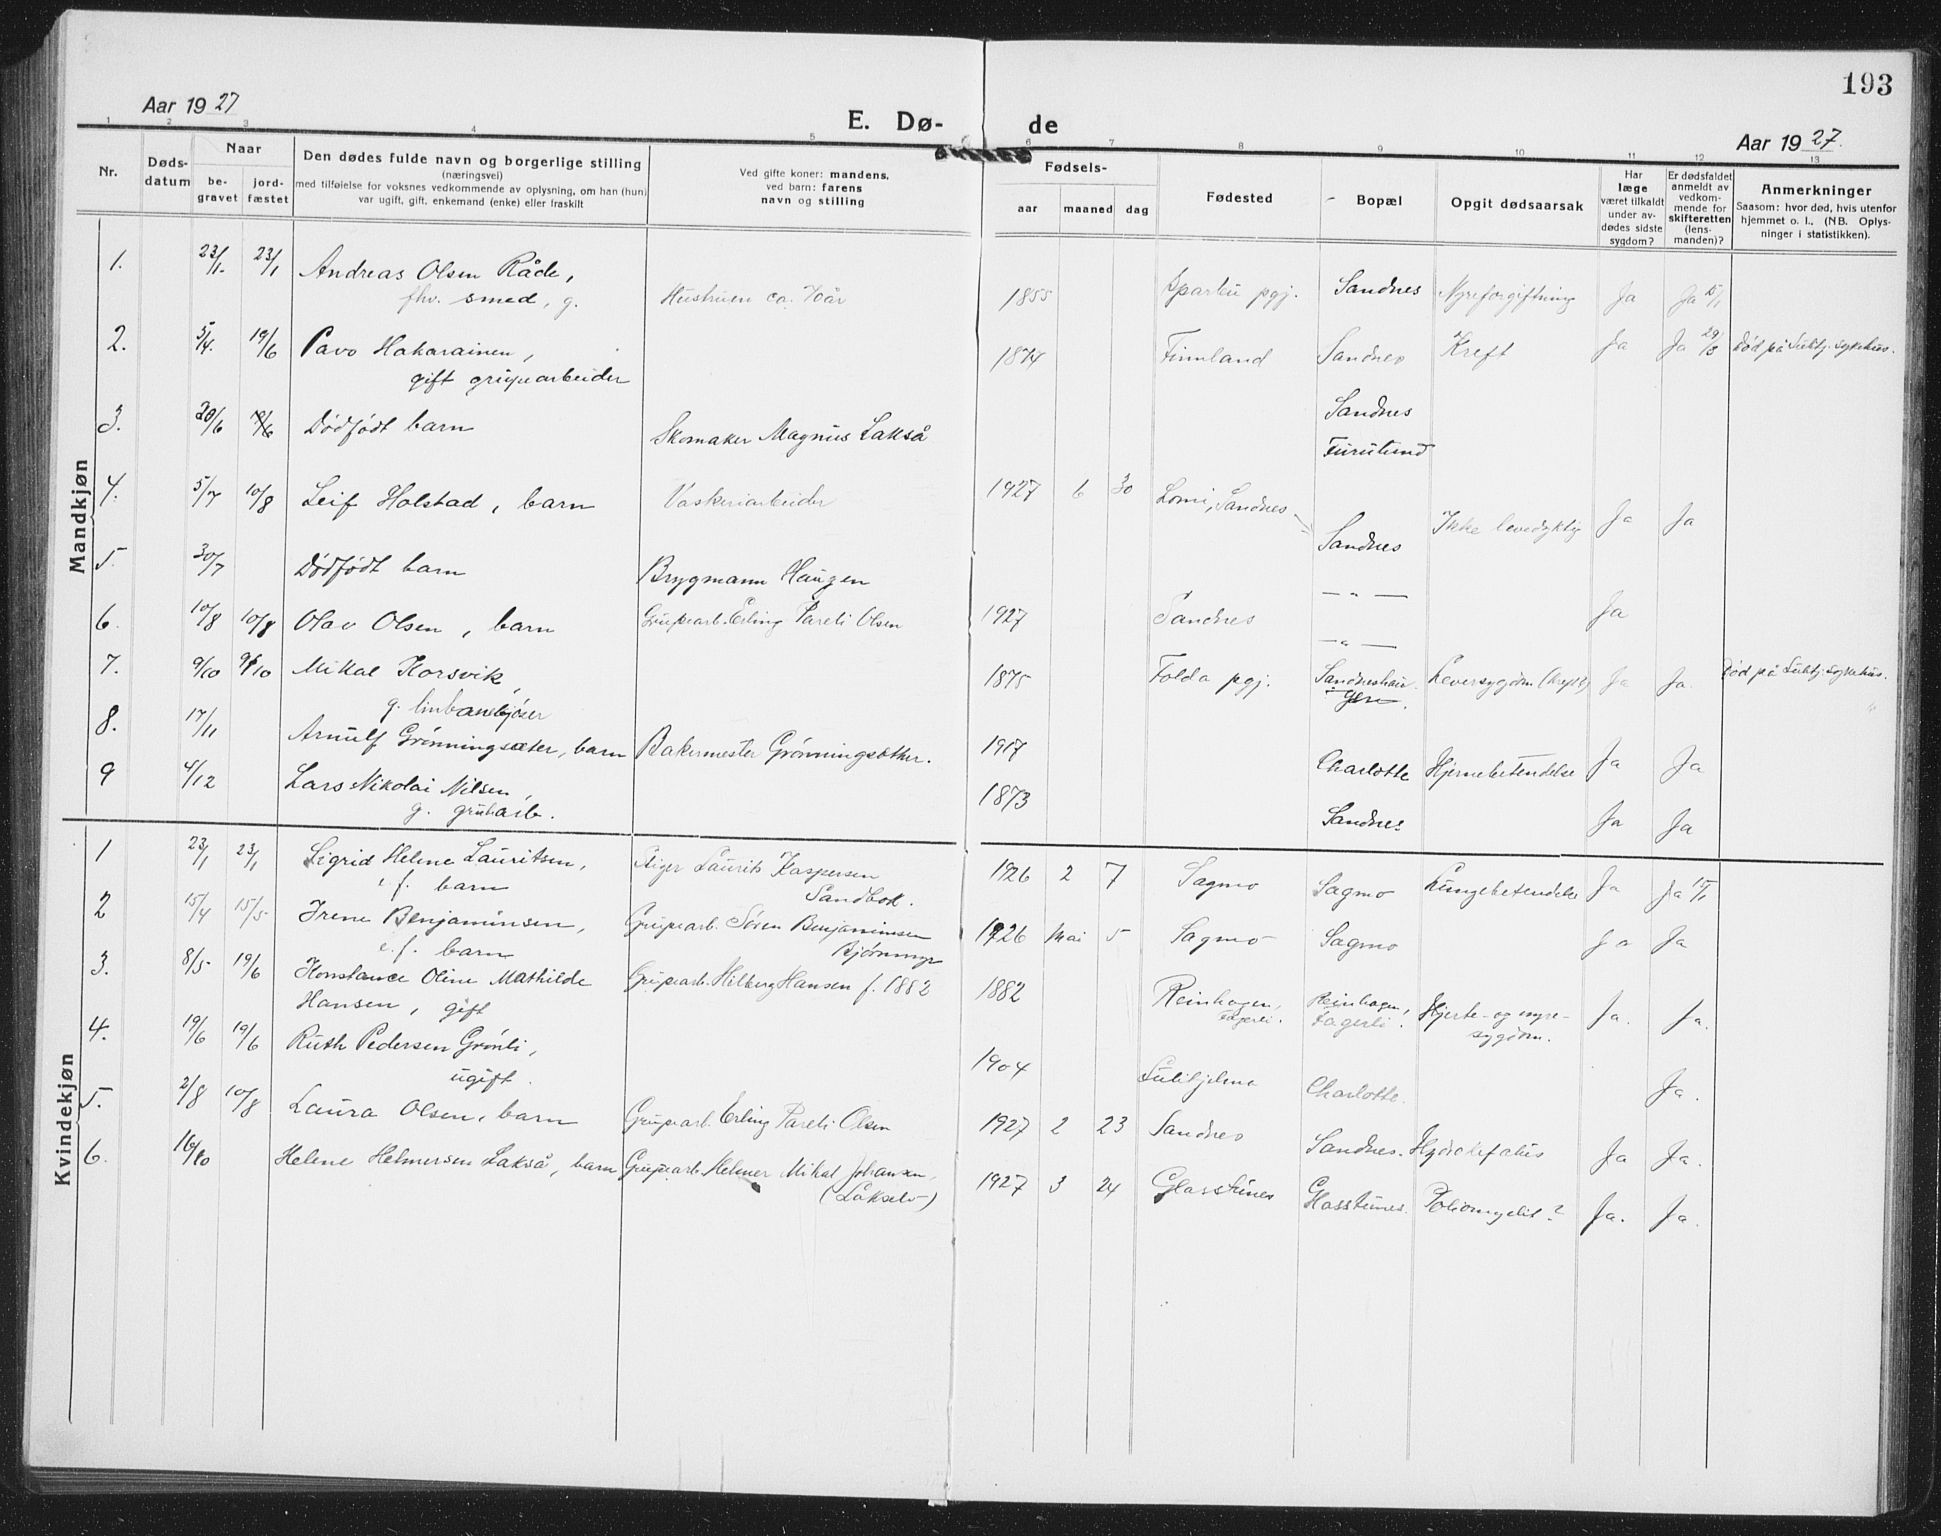 193
Aar 1927
E. Dø-
de
Aar 1927.
1 2 3 4 5 6 7 8 9 10 11 12 13
Nr.
Døds-
datum
Naar
be-
gravet
jord-
fæstet
Den dødes fulde navn og borgerlige stilling
(næringsvei)
med tilføielse for voksnes vedkommende av oplysning, om han (hun)
var ugift, gift, enkemand (enke) eller fraskilt
Ved gifte koner: mandens,
ved barn: farens
navn og stilling
Fødsels-
aar
maaned
dag
Fødested
Bopæl
Opgit dødsaarsak
Har
læge
været tilkaldt
under av-
dødes sidste
sygdom?
Er dødsfaldet
anmeldt av
vedkom-
mende for
skifteretten
(lens-
manden)?
Anmerkninger
Saasom: hvor død, hvis utenfor
hjemmet o. l., (NB. Oplys-
ninger i statistikken).
Mandkjøn
1. 23/1. 23/1 Andreas Olsen Råde,
fhv. smed, g. Hustruen ca. 70 år 1855 Sparbu pgj. Sandnes Nyreforgiftning Ja Ja 15/1
2. 5/4. 19/6 Pavo Hakarainen,
gift grupearbeider 1874 Finnland Sandnes Kreft Ja Ja 29/3 Død på Sulitj. sykehus.
3. 20/6 Dødfødt barn Skomaker Magnus Lakså Sandnes
Furulund
4. 5/7 10/8 Leif Holstad, barn Vaskeriarbeider 1927 6 30 Lomi, Sandnes Sandnes Ikke levedyktig Ja Ja
5. 30/7 Dødfødt barn Brygmann Haugen — " —
6. 10/8 10/8 Olav Olsen, barn Grupearb. Erling Pareli Olsen 1927 Sandnes — " — Ja
7. 9/10 9/10 Mikal Korsvik,
g. linbanekjører 1875 Folda pgj. Sandneshau-
gen. Leversygdom (kreft) Ja Ja. Død på Sulitj. sykehus.
8. 17/11 Arnulf Grønningsæter, barn Bakermester Grønningsæther. 1917 Charlotte Hjernebetendelse Ja Ja
9 4/12 Lars Nikolai Nilsen,
g. grubarb. 1873 Sandnes Ja Ja
Kvindekjøn
1 23/1 23/1 Sigrid Helene Lauritsen,
e. f. barn Stiger Laurits Kaspersen
Sandbok. 1926 2 7 Sagmo Sagmo Lungebetendelse Ja Ja 15/1
2 15/4 15/5 Irene Benjaminsen,
e. f. barn Grupearb. Søren Benjaminsen
Bjørnmyr 1926 Mai 5 Sagmo Sagmo Ja Ja
3. 8/5 19/6 Konstance Oline Mathilde
Hansen, gift Grupearb. Hilberg Hansen f. 1882 1882 Reinhagen,
Fagerli. Reinhagen,
Fagerli. Hjerte- og nyre-
sygdom. Ja. Ja.
4. 19/6 19/6 Ruth Pedersen Grønli,
ugift. 1904 Sulitjelma Charlotte. Ja.
5. 2/8 10/8 Laura Olsen, barn Grupearb. Erling Pareli Olsen 1927 2 23 Sandnes Sandnes. Hydrocefalus Ja Ja.
6. 16/10 Helene Helmersen Lakså, barn Grupearb. Helmer Mikal Johansen,
(Lakselv) 1927 3 24 Glasstunes Glasstunes. Poliomyelit? Ja. Ja.